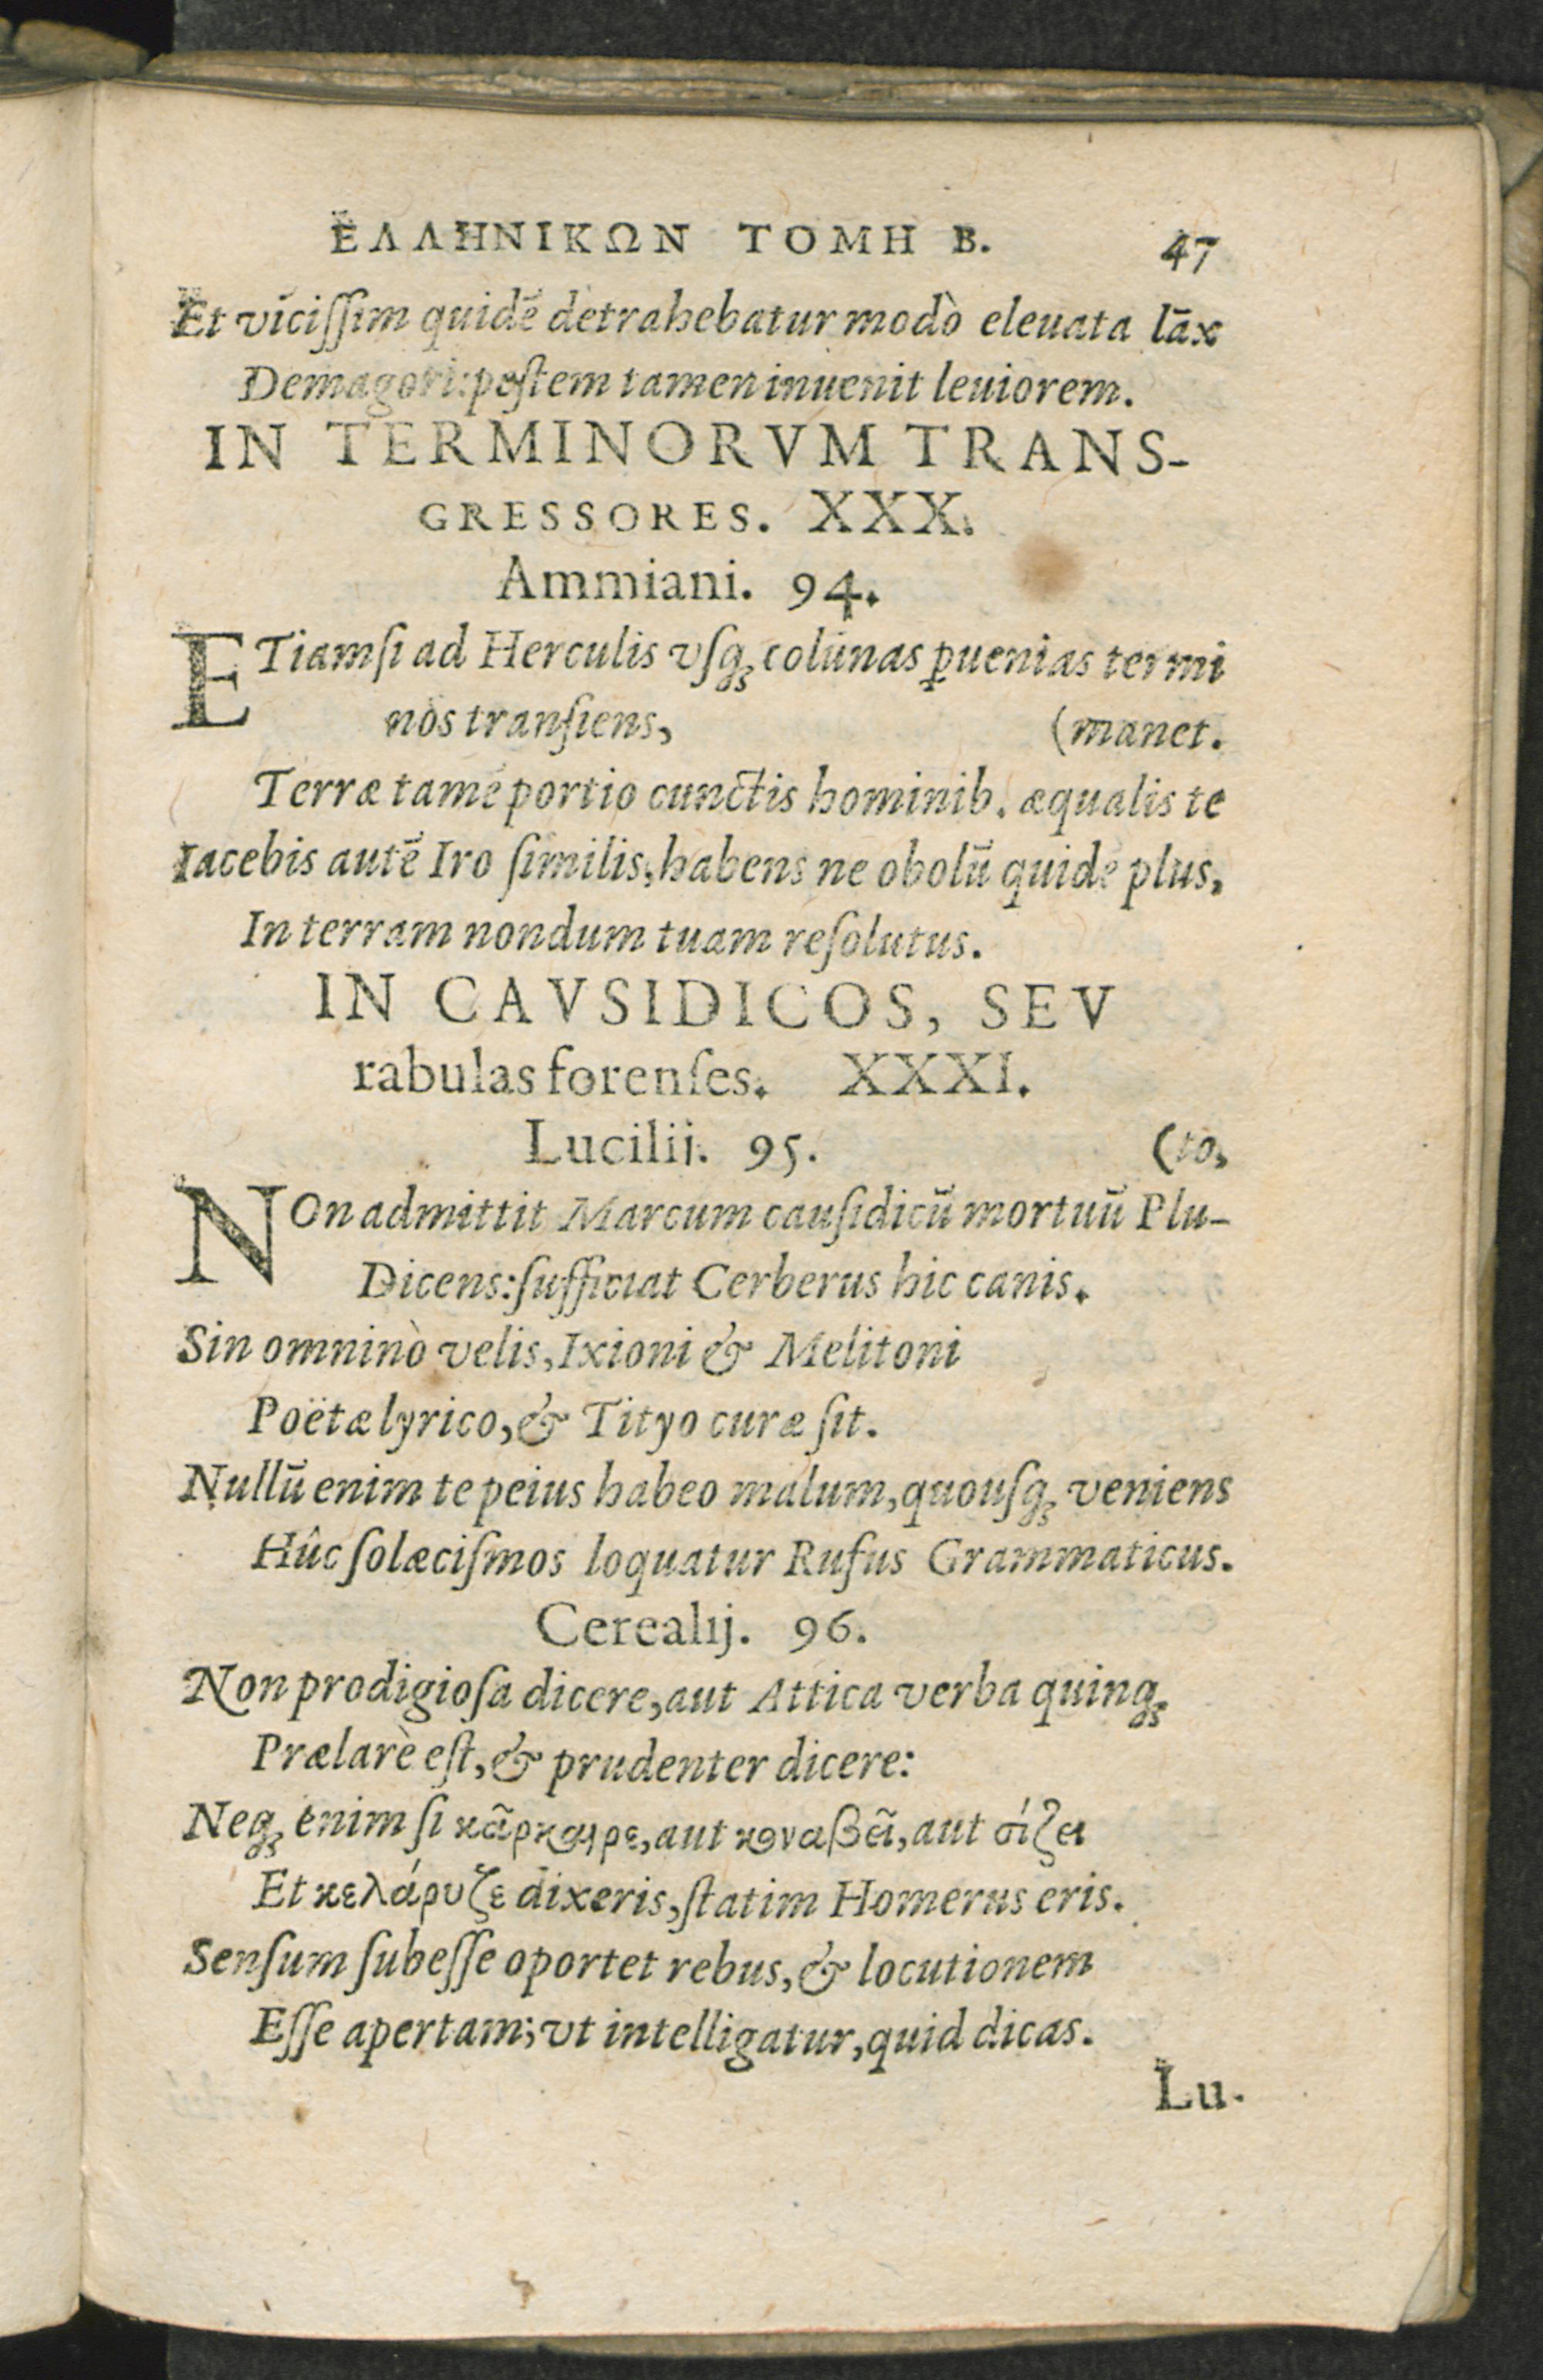 ΕΛΛΗΝΙΚΩΝ ΤΟΜΗ Β. 47
Et viciſſim quidē detrahebatur modò eleuata lāx
Demagori: peſtem tamen inuenit leuiorem.
IN TERMINORVM TRANS-
GRESSORES. XXX.
Ammiani. 94.
ETiamſi ad Herculis vſq́; colūnas ꝑuenias termi
nos tranſiens, (manet.
Terræ tamē portio cunctis hominib. æqualis te
Iacebis autē Iro ſimilis, habens ne obolū quidē plus,
In terram nondum tuam reſolutus.
IN CAVSIDICOS, SEV
rabulas forenſes. XXXI.
Lucilii. 95. (to,
NOn admittit Marcum cauſidicū mortuū Plu-
Dicens: ſufficiat Cerberus hic canis.
Sin omninò velis, Ixioni & Melitoni
Poëtæ lyrico, & Tityo curæ ſit.
Nullū enim te peius habeo malum, quouſq; veniens
Hûc ſolæciſmos loquatur Rufus Grammaticus.
Cerealij. 96.
Non prodigioſa dicere, aut Attica verba quinq;
Prælarè eſt, & prudenter dicere:
Neq; enim ſi κᾶρκαιρε, aut κοναβεῖ, aut σίζει
Et κελάρυζε dixeris, ſtatim Homerus eris.
Senſum ſubeſſe oportet rebus, & locutionem
Eſſe apertam; vt intelligatur, quid dicas.
Lu-